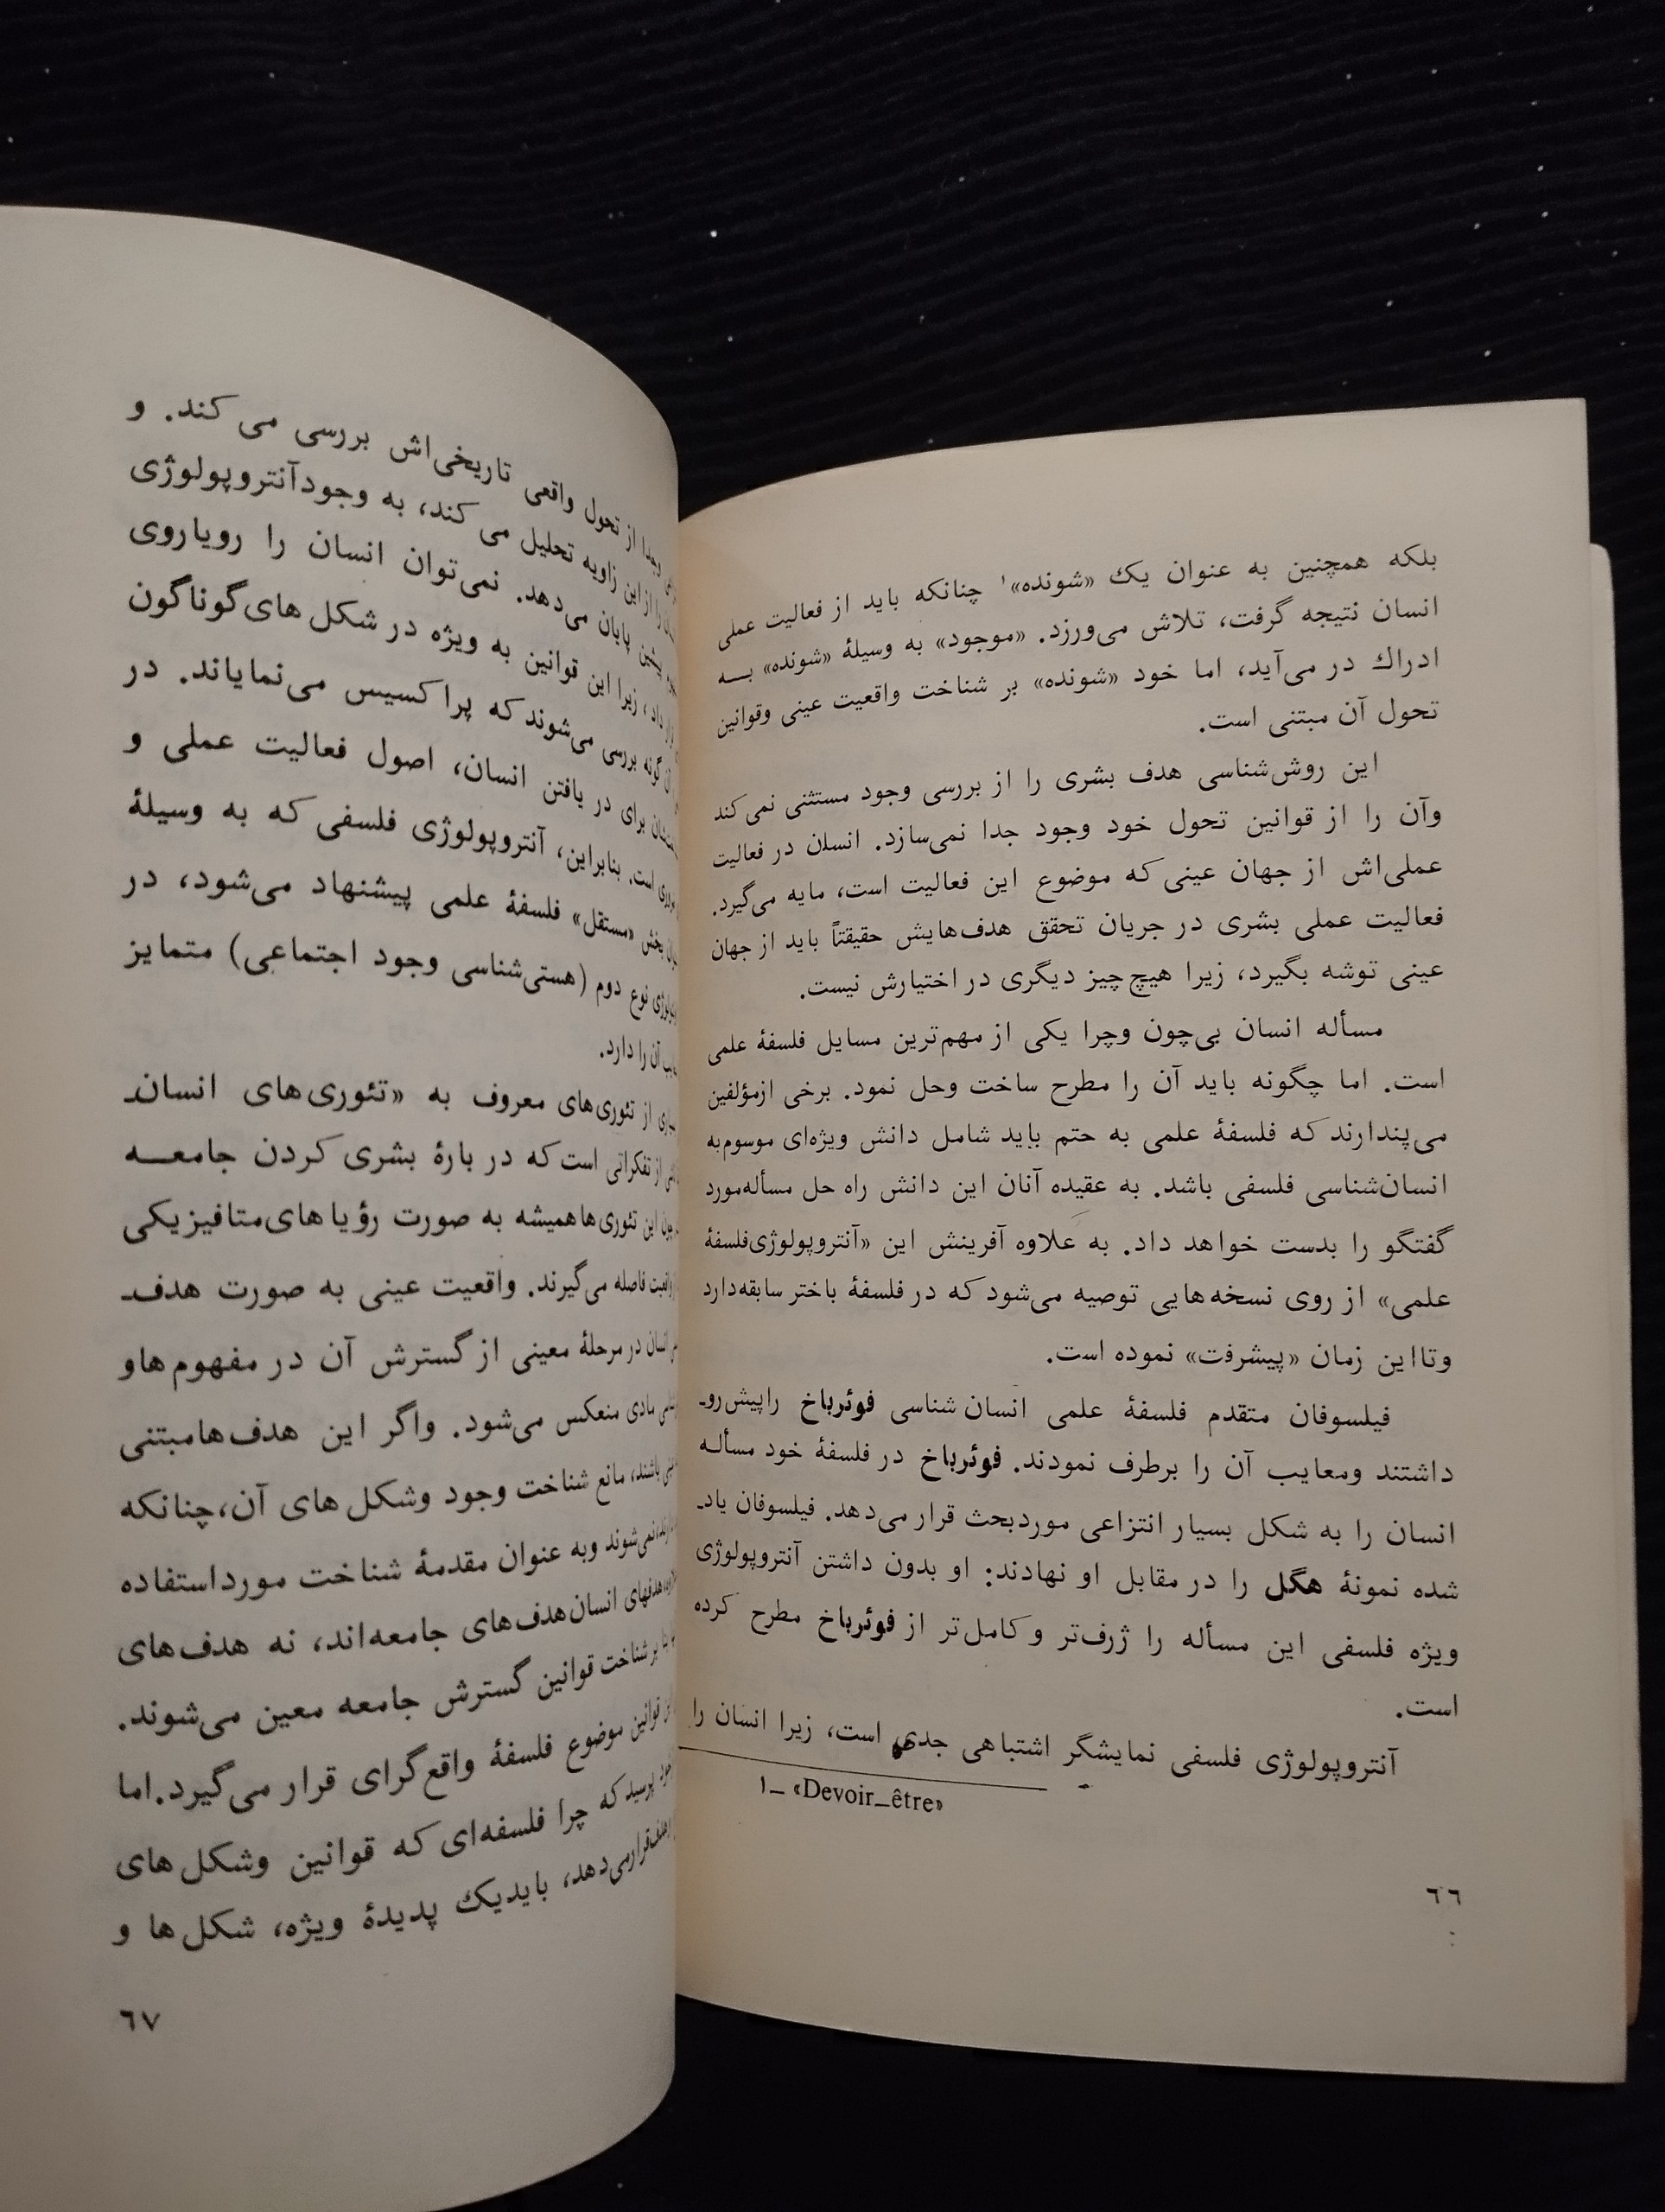 بلکه همچنین به عنوان یک «شونده»۱ چنانکه باید از فعالیت عملی
انسان نتیجه گرفت، تلاش می‌ورزد. «موجود» به وسیلهٔ «شونده» بــه
ادراک در می‌آید، اما خود «شونده» بر شناخت واقعیت عینی وقوانین
تحول آن مبتنی است.
این روش‌شناسی هدف بشری را از بررسی وجود مستثنی نمی‌کند
وآن را از قوانین تحول خود وجود جدا نمی‌سازد. انسان در فعالیت
عملی‌اش از جهان عینی که موضوع این فعالیت است، مایه می‌گیرد.
فعالیت عملی بشری در جریان تحقق هدف‌هایش حقیقتاً باید از جهان
عینی توشه بگیرد، زیرا هیچ چیز دیگری در اختیارش نیست.
مسأله انسان بی‌چون وچرا یکی از مهم‌ترین مسایل فلسفهٔ علمی
است. اما چگونه باید آن را مطرح ساخت وحل نمود. برخی ازمؤلفین
می‌پندارند که فلسفهٔ علمی به حتم باید شامل دانش ویژه‌ای موسوم‌به
انسان‌شناسی فلسفی باشد. به عقیده آنان این دانش راه حل مسأله‌مورد
گفتگو را بدست خواهد داد. به علاوه آفرینش این «آنتروپولوژی‌فلسفهٔ
علمی» از روی نسخه‌هایی توصیه می‌شود که در فلسفهٔ باختر سابقه‌دارد
وتااین زمان «پیشرفت» نموده است.
فیلسوفان متقدم فلسفهٔ علمی انسان‌شناسی فوئرباخ راپیش‌روـ
داشتند ومعایب آن را برطرف نمودند. فوئرباخ در فلسفهٔ خود مسألـه
انسان را به شکل بسیار انتزاعی موردبحث قرار می‌دهد. فیلسوفان یادـ
شده نمونهٔ هگل را در مقابل او نهادند: او بدون داشتن آنتروپولوژی
ویژه فلسفی این مسأله را ژرف‌تر و کامل‌تر از فوئرباخ مطرح کرده
است.
آنتروپولوژی فلسفی نمایشگر اشتباهی جدی است، زیرا انسان را
۱ـ «Devoir_être»
٦٦
وجدا از تحول واقعی تاریخی‌اش بررسی می‌کند. و
را از این زاویه تحلیل می‌کند، به وجودآنتروپولوژی
پایان می‌دهد. نمی‌توان انسان را رویاروی
داد، زیرا این قوانین به ویژه در شکل‌های گوناگون
گونه بررسی می‌شوند که پراکسیس می‌نمایاند. در
برای در یافتن انسان، اصول فعالیت عملی و
است. بنابراین، آنتروپولوژی فلسفی که به وسیلهٔ
بخش «مستقل» فلسفهٔ علمی پیشنهاد می‌شود، در
نوع دوم (هستی‌شناسی وجود اجتماعی) متمایز
آن را دارد.
از تئوری‌های معروف به «تئوری‌های انسان‌ـ
از تفکراتی است که در بارهٔ بشری کردن جامعــه
این تئوری‌هاهمیشه به صورت رؤیاهای‌متافیزیکی
واقعیت فاصله می‌گیرند. واقعیت عینی به صورت هدف‌ـ
انسان در مرحلهٔ معینی از گسترش آن در مفهوم هاو
مادی منعکس می‌شود. واگر این هدف‌هامبتنی
باشند، مانع شناخت وجود وشکل‌های آن،چنانکه
نمی‌شوند وبه عنوان مقدمهٔ شناخت مورداستفاده
هدفهای انسان‌هدف‌های جامعه‌اند، نه هدف‌های
بر شناخت قوانین گسترش جامعه معین می‌شوند.
قوانین موضوع فلسفهٔ واقع‌گرای قرار می‌گیرد.اما
پرسید که چرا فلسفه‌ای که قوانین وشکل‌های
قرارمی‌دهد، بایدیک پدیدهٔ ویژه، شکل‌ها و
٦٧